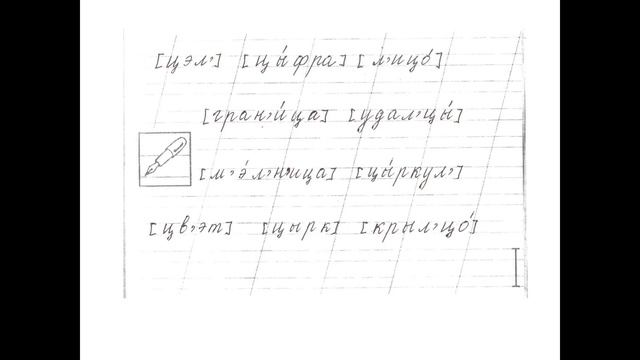 [цэл,] [цы́фра] [л,ицо́]
[гран,и́ца] [удал,цы́]
[м,э́л,н,ица] [цы́ркул,]
[цв,эт] [цырк] [крыл,цо́]